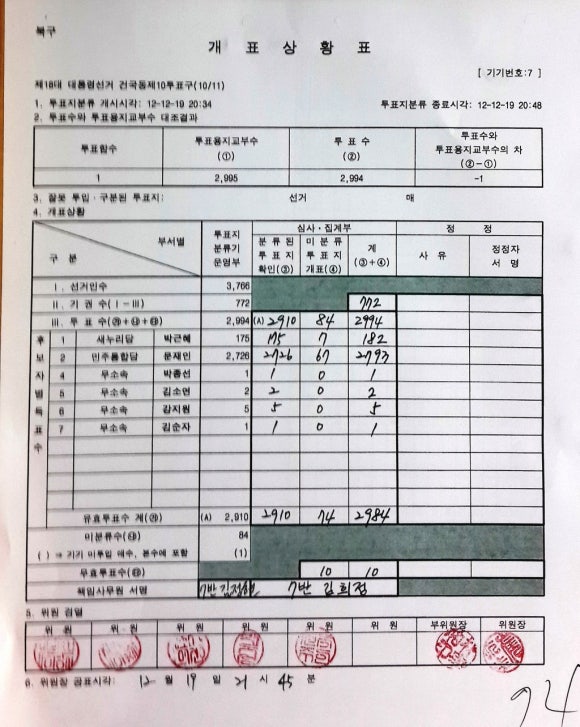 북구
개 표 상 황 표
[ 기기번호:7 ]
제18대 대통령선거 건국동제10투표구(10/11)
1. 투표지분류 개시시각: 12-12-19 20:34 투표지분류 종료시각: 12-12-19 20:48
2. 투표수와 투표용지교부수 대조결과
투표함수 투표용지교부수 (①) 투 표 수 (②) 투표수와 투표용지교부수의 차 (②-①)
1 2,995 2,994 -1
3. 잘못 투입·구분된 투표지: 선거 매
4. 개표상황
구 분 부서별 투표지 분류기 운영부 심사·집계부 정 정
분 류 된 투 표 지 확인(③) 미 분 류 투 표 지 개표(④) 계 (③+④) 사 유 정정자 서 명
Ⅰ. 선거인수 3,766
Ⅱ. 기 권 수(Ⅰ-Ⅲ) 772 772
Ⅲ. 투 표 수 2,994 (A) 2910 84 2994
후보자별득표수
1 새누리당 박근혜 175 175 7 182
2 민주통합당 문재인 2,726 2726 67 2793
4 무소속 박종선 1 1 0 1
5 무소속 김소연 2 2 0 2
6 무소속 강지원 5 5 0 5
7 무소속 김순자 1 1 0 1
유효투표수 계 (A) 2,910 2910 74 2984
미분류수 84
( ) ⇒ 기기 미투입 매수, 본수에 포함 (1)
무효투표수 10 10
책임사무원 서명 7반 7반 김희정
5. 위원 검열
위 원 위 원 위 원 위 원 위 원 위 원 부위원장 위원장
6. 위원장 공표시각: 12 월 19 일 21 시 45 분
94